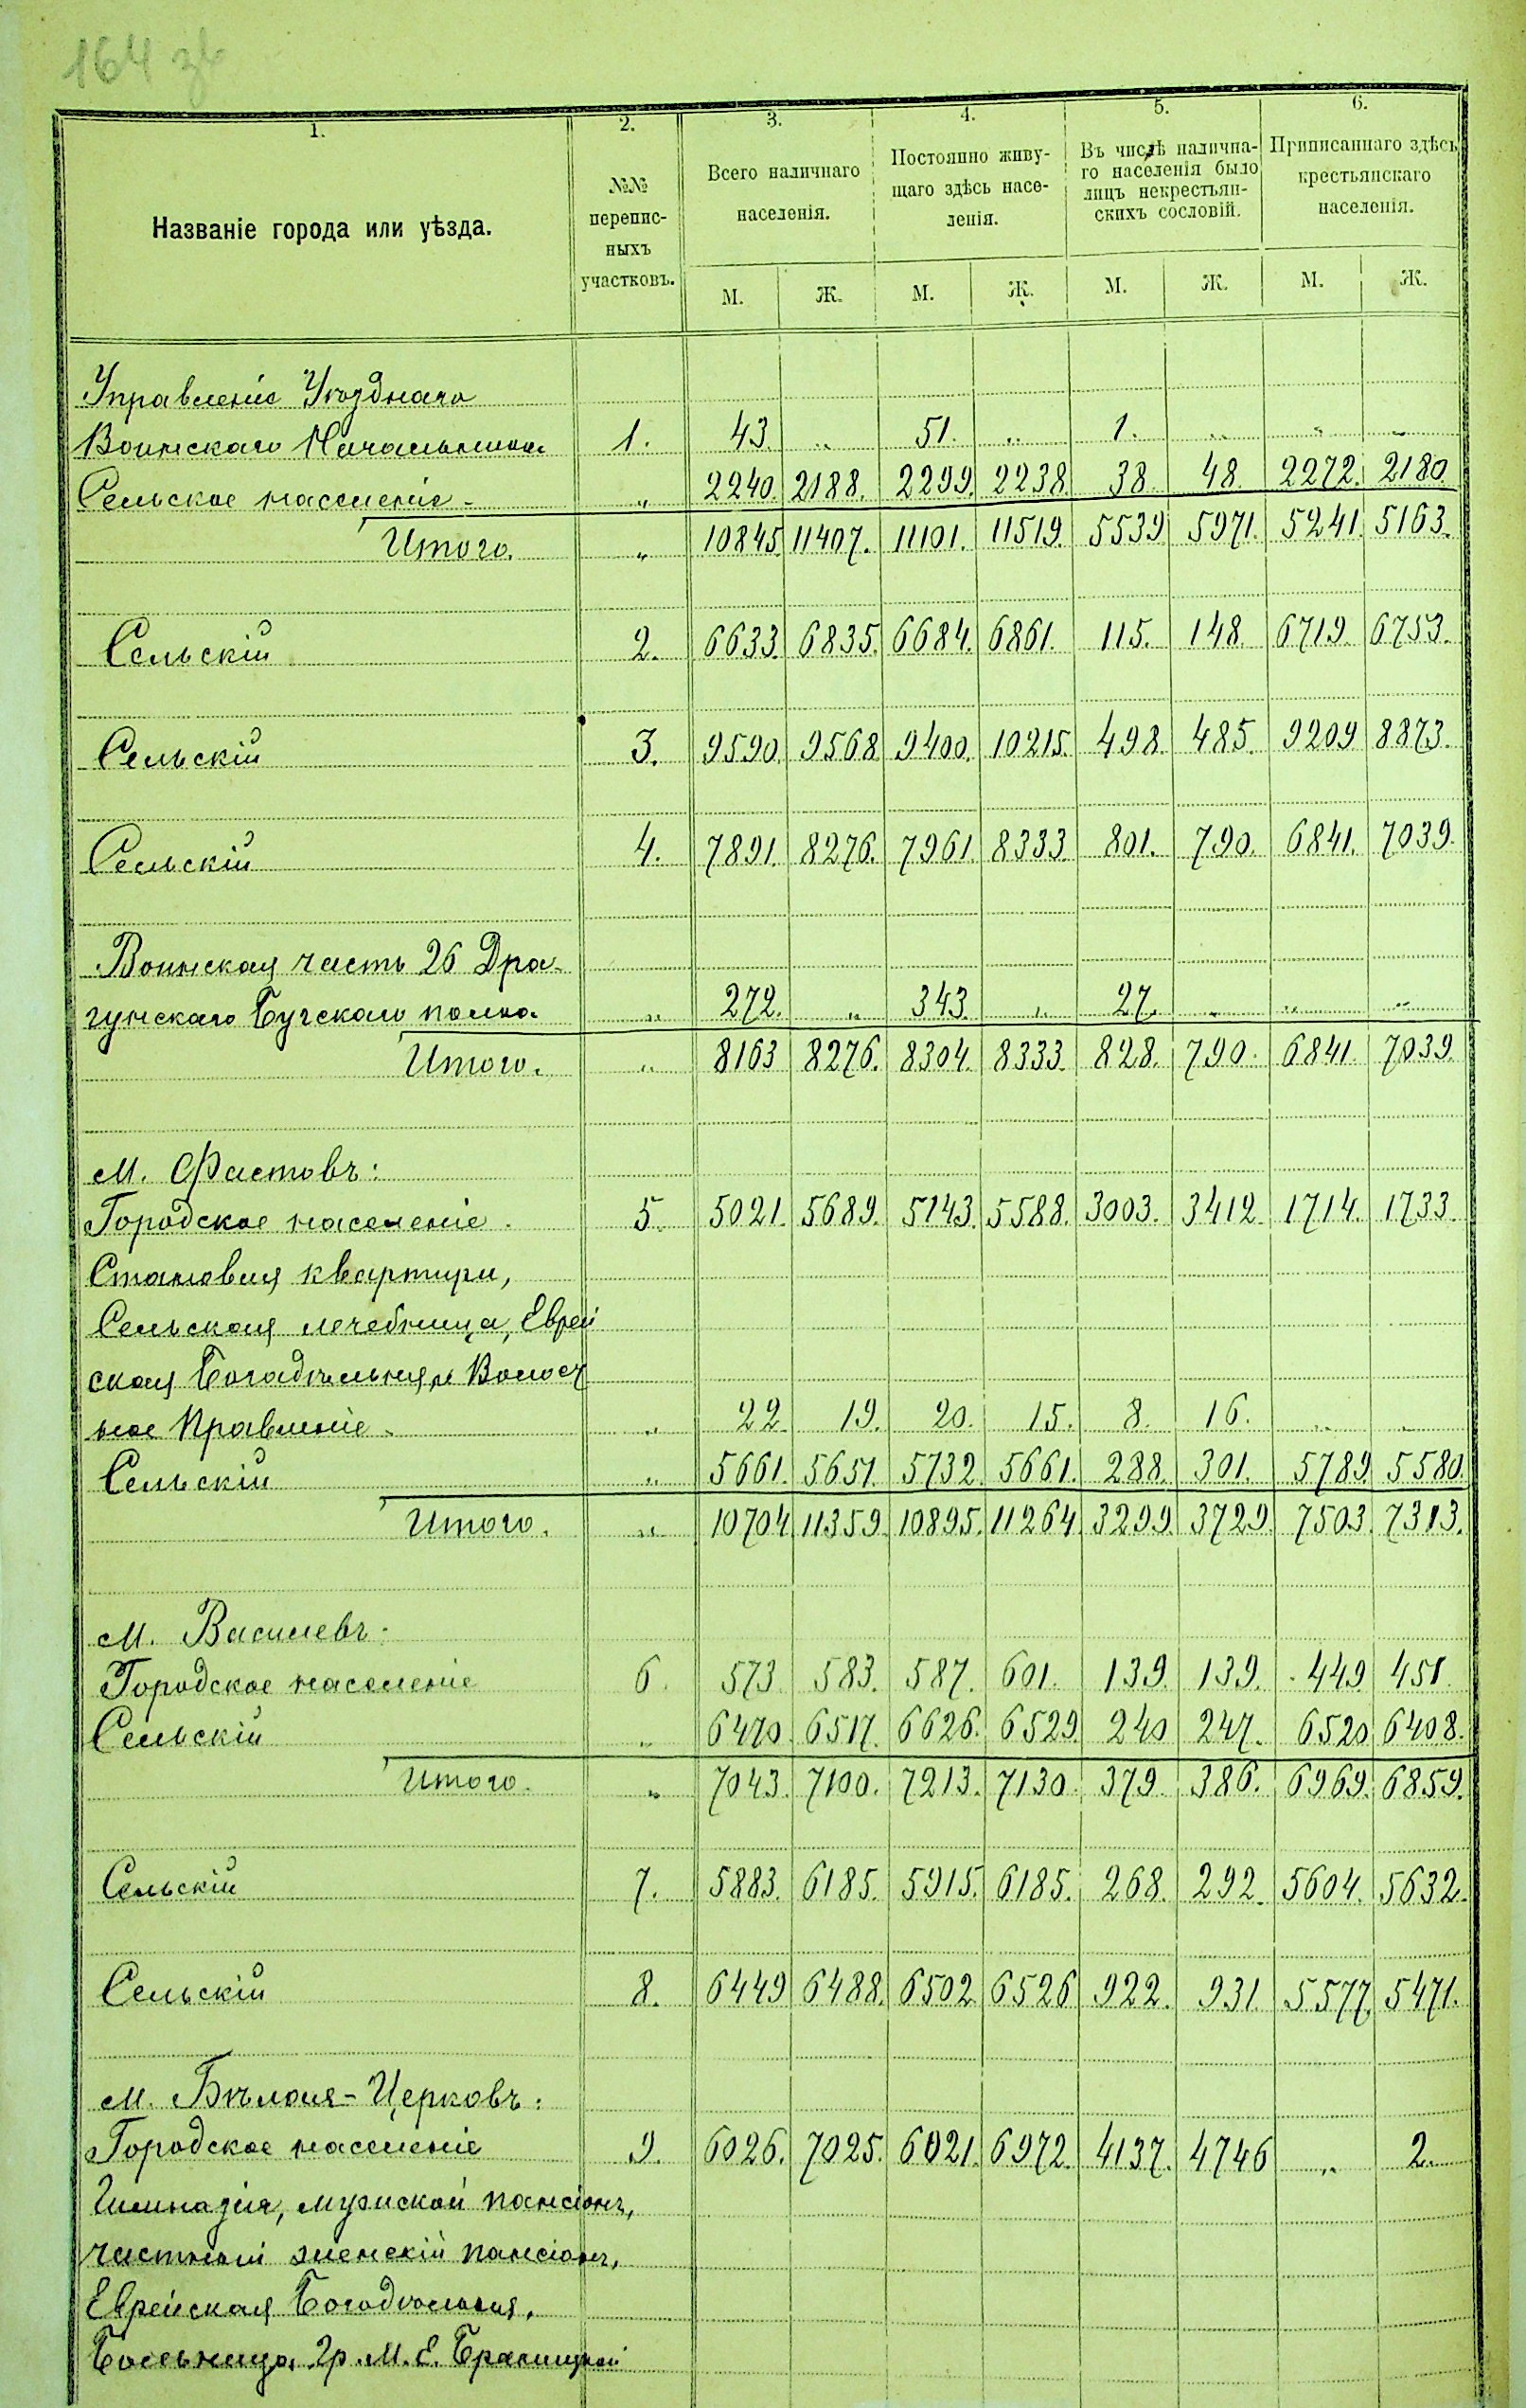 164 зв
1. 2. 3. 4. 5. 6.
Названіе города или уѣзда.
№№ перепис-
ныхъ
участковъ.
Всего наличнаго
населенія.
Постоянно живу-
щаго здѣсь насе-
ленія.
Въ числѣ налична-
го населенія было
лицъ некрестьян-
скихъ сословій.
Приписаннаго здѣсь
крестьянскаго
населенія.
М. Ж. М. Ж. М. Ж. М. Ж.
Управленіе Уѣзднаго
Воинскаго Начальника 1. 43. " 51. " 1. " " "
Сельское населеніе - " 2240. 2188. 2299. 2238. 38. 48. 2272. 2180.
Итого. " 10845. 11407. 11101. 11519. 5539. 5971. 5241. 5163.
Сельскій 2. 6633. 6835. 6684. 6861. 115. 148. 6719. 6753.
Сельскій 3. 9590. 9568. 9400. 10215. 498. 485. 9209 8873.
Сельскій 4. 7891. 8276. 7961. 8333 801. 790. 6841. 7039.
Воинская часть 26 Дра-
гунскаго Бугскаго полка. " 272. " 343. " 27. " " "
Итого. " 8163 8276. 8304. 8333. 828. 790. 6841. 7039.
М. Фастовъ:
Городское населеніе. 5. 5021. 5689. 5143. 5588. 3003. 3412. 1714. 1733.
Становая квартира,
Сельская лечебница, Еврей
ская Богадѣльня, и Волост
ное Правленіе. " 22. 19. 20. 15. 8. 16. " "
Сельскій " 5661. 5651. 5732. 5661. 288. 301. 5789. 5580.
Итого. " 10704 11359. 10895. 11264. 3299. 3729. 7503. 7313.
М. Василевъ.
Городское населеніе 6. 573. 583. 587. 601. 139. 139. 449 451.
Сельскій " 6470. 6517. 6626. 6529. 240 247. 6520 6408.
Итого. " 7043. 7100. 7213. 7130. 379. 386. 6969. 6859.
Сельскій 7. 5883. 6185. 5915. 6185. 268. 292. 5604. 5632.
Сельскій 8. 6449 6488. 6502. 6526 922. 931. 5577. 5471.
М. Бѣлая-Церковь:
Городское населеніе 9. 6026. 7025. 6021. 6972. 4137. 4746 " 2.
Гимназія, мужской пансіонъ,
частный женскій пансіонъ,
Еврейская Богадѣльня,
Больница Гр. М. Е. Браницкой